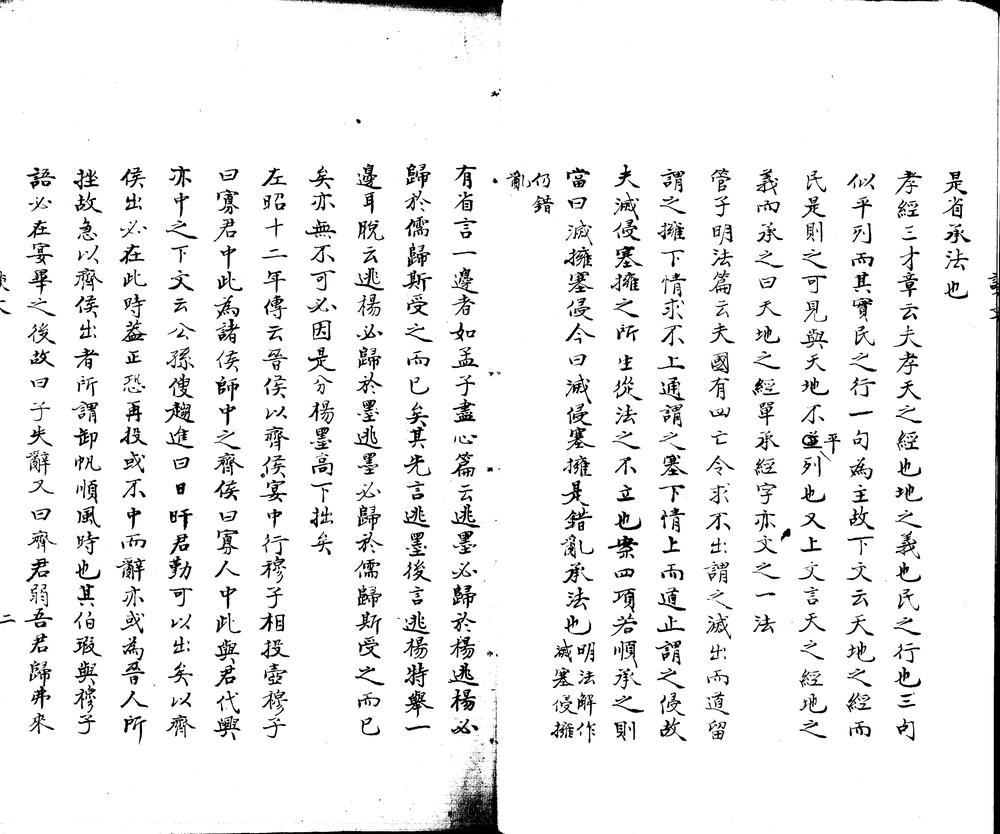 是省承法也
孝經三才章云夫孝天之經也地之義也民之行也三句
似平列而其實民之行一句為主故下文云天地之經而
民是則之可見與天地不平列也又上文言天之經地之
義而承之曰天地之經單承經字亦文之一法
管子明法篇云夫國有四亡令求不出謂之滅出而道留
謂之擁下情求不上通謂之塞下情上而道止謂之侵故
夫滅侵塞擁之所生從法之不立也案四項若順承之則
當曰滅擁塞侵今曰滅侵塞擁是錯亂承法也 明法解作
滅塞侵擁
仍錯
亂
有省言一邊者如孟子盡心篇云逃墨必歸於楊逃楊必
歸於儒歸斯受之而已矣其先言逃墨後言逃楊特舉一
邊耳脫云逃楊必歸於墨逃墨必歸於儒歸斯受之而已
矣亦無不可必因是分楊墨高下拙矣
左昭十二年傳云晉侯以齊侯宴中行穆子相投壺穆子
曰寡君中此為諸侯師中之齊侯曰寡人中此與君代興
亦中之下文云公孫傁趨進曰日旰君勤可以出矣以齊
侯出必在此時葢正恐再投或不中而辭亦或為晉人所
挫故急以齊侯出者所謂卸帆順風時也其伯瑕與穆子
語必在宴畢之後故曰子失辭又曰齊君弱吾君歸弗來
二